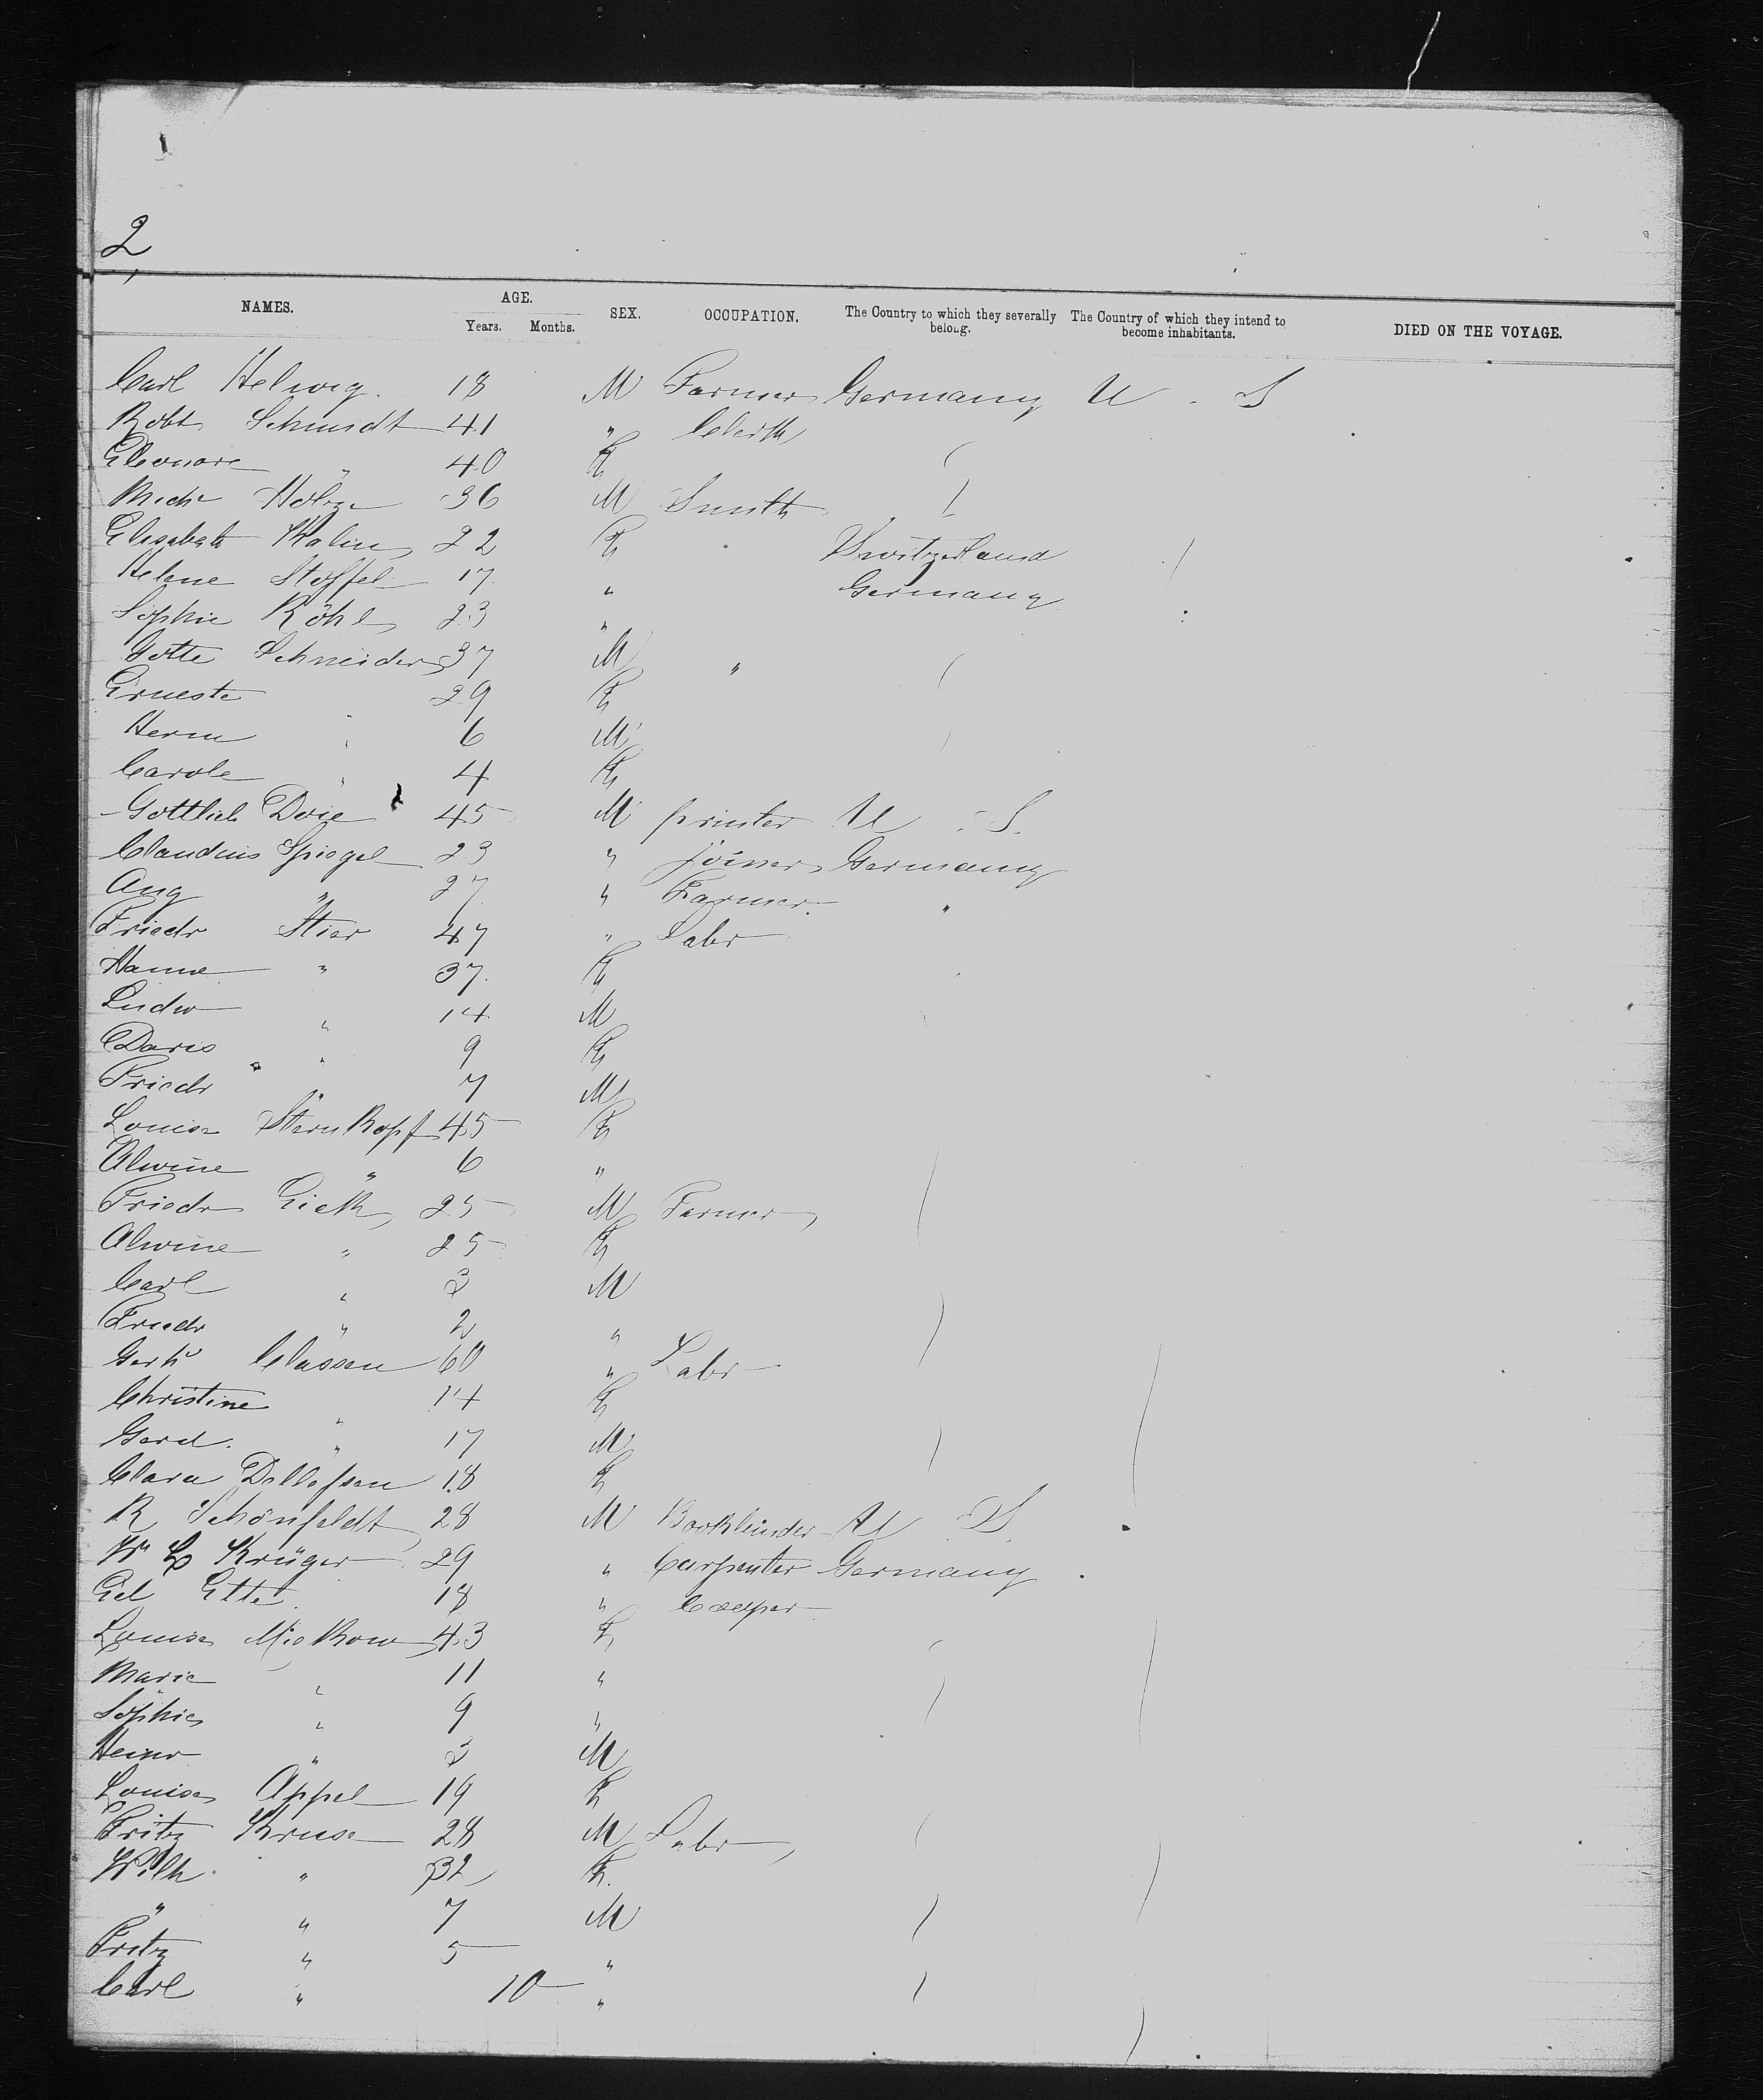 2
NAMES. AGE. Years. Months. SEX. OCCUPATION. The Country to which they severally belong. The Country of which they intend to become inhabitants. DIED ON THE VOYAGE.
Carl Helwig. 18 M Farmer Germany U. S
Robt Schmidt 41 " Clerk
Eleonore " 40 F
Mich 36 M Smith
Elisabeth Kalin 22 F Switzerland
Helene Stoffel 17 " Germany
Sophie Köhl 23 "
Gotte Schneider 37 M "
Erneste " 29 F
Herm " 6 M
Carole " 4 F
Gottlieb Doie 45 M printer U. S.
Claudius Spiegel 23 " joiner Germany
Aug " 27 " Farmer "
Friedr Stier 47 " Labr
Hanne " 37 F
Ludw " 14 M
Doris " 9 F
Friedr " 7 M
Louise Sternkopf 45 F
Alwine " 6 "
Friedr 25 M Farmer
Alwine " 25 F
Carl " 3 M
Friedr " 2 "
Gerh Classen 60 " Labr
Christine " 14 F
Gerd. " 17 M
Clara Detlefsen 18 F
R Schönfeldt 28 M Bookbinder U S
Krüger 29 " Carpenter Germany
Ed Ette 18 " Cooper
Louise Miskow 43 F
Marie " 11 "
Sophie " 9 "
Heinr " 3 M
Louise Appel 19 F
Fritz Kruse 28 M Labr
Wilh " 32 F.
" " 7 M
Fritz " 5 "
Carl " 10 "